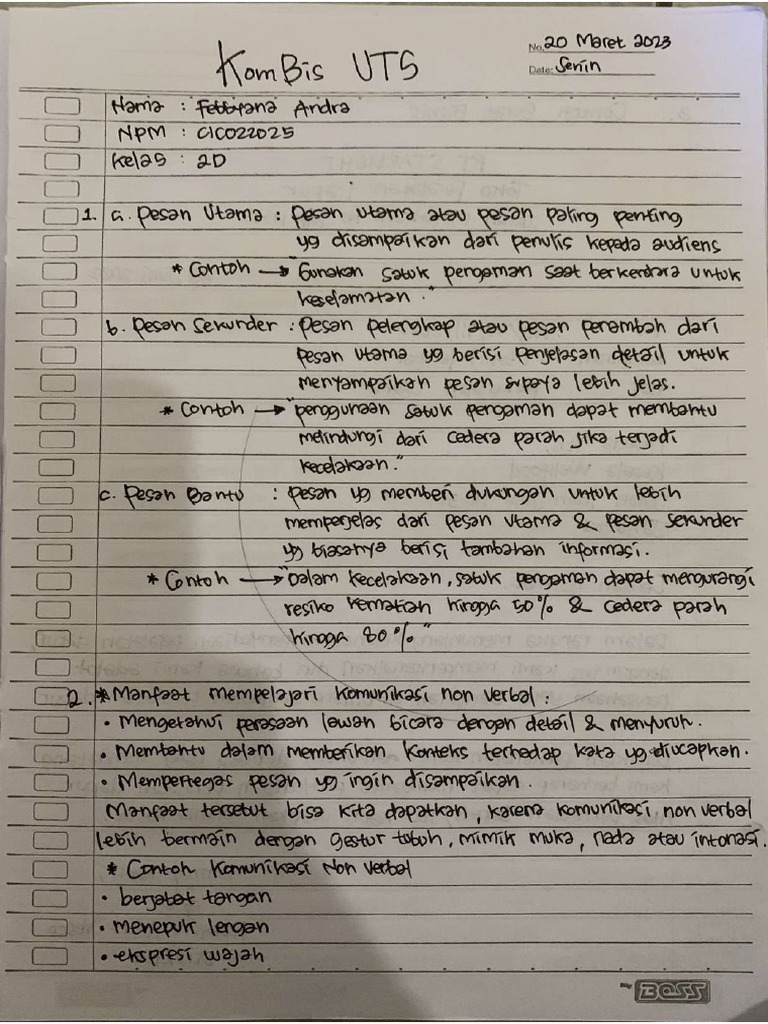 KomBis UTS
No. 20 Maret 2023
Date: Senin
Nama : Febbyana Andra
NPM : C1C022025
Kelas : 2D
1. a. Pesan Utama : Pesan utama atau pesan paling penting
yg disampaikan dari penulis kepada audiens
* Contoh → "Gunakan sabuk pengaman saat berkendara untuk
keselamatan."
b. Pesan Sekunder : Pesan pelengkap atau pesan penambah dari
pesan utama yg berisi penjelasan detail untuk
menyampaikan pesan supaya lebih jelas.
* Contoh → "penggunaan sabuk pengaman dapat membantu
melindungi dari cedera parah jika terjadi
kecelakaan."
c. Pesan Bantu : Pesan yg memberi dukungan untuk lebih
memperjelas dari pesan utama & pesan sekunder
yg biasanya berisi tambahan informasi.
* Contoh → "Dalam kecelakaan, sabuk pengaman dapat mengurangi
resiko kematian hingga 50% & cedera parah
hingga 80%"
2. * Manfaat mempelajari komunikasi non verbal :
• Mengetahui perasaan lawan bicara dengan detail & menyuruh.
• Membantu dalam memberikan konteks terhadap kata yg diucapkan.
• Mempertegas pesan yg ingin disampaikan.
Manfaat tersebut bisa kita dapatkan, karena komunikasi non verbal
lebih bermain dengan gestur tubuh, mimik muka, nada atau intonasi.
* Contoh Komunikasi Non Verbal
• berjabat tangan
• menepuk lengan
• ekspresi wajah
BOSS